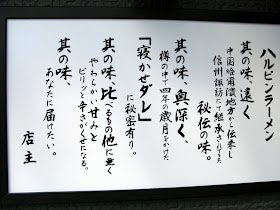 ハルピンラーメン
其の味、遠く
中国哈爾濱地方から伝来し
信州諏訪にて継承されてた
秘伝の味。
其の味、奥深く、
樽の中で四年の歳月をかけた
「寝かせダレ」
に秘密有り。
其の味、比べるもの他に無く
やわらかい甘みと
ピリッと辛さがくせになる。
其の味、
あなたに届けたい。
店主